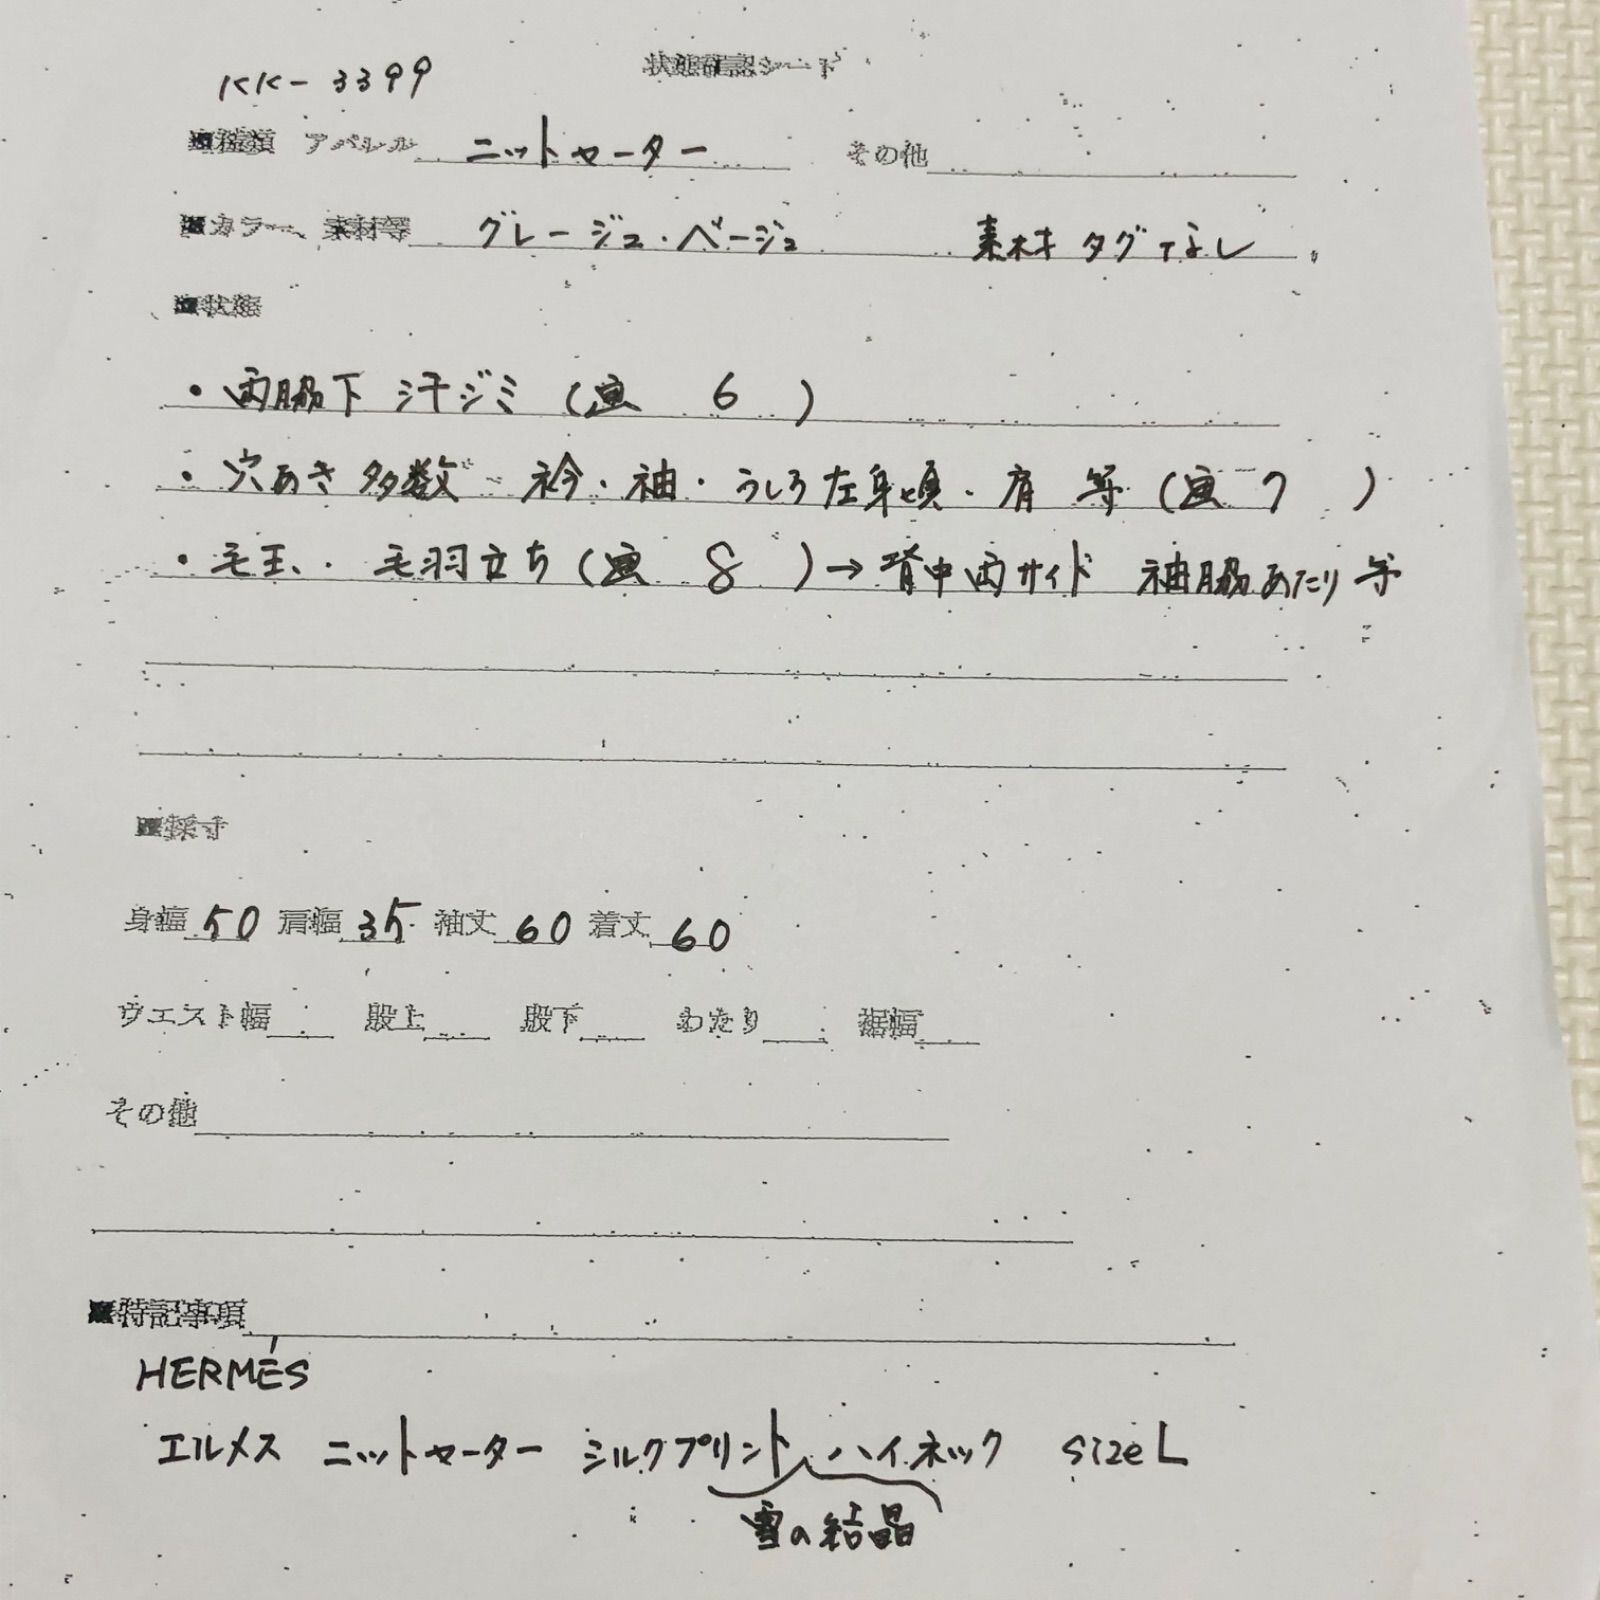 状態確認シート
KK-3399
■種類 アパレル ニットセーター その他
■カラー、素材等 グレージュ・ベージュ 素材タグなし
■状態
・両脇下 汗ジミ (画 6 )
・穴あき多数 衿・袖・うしろ左身頃・肩 等 (画 7 )
・毛玉・毛羽立ち (画 8 )→背中両サイド 袖脇あたり等
■採寸
身幅 50 肩幅 35 袖丈 60 着丈 60
ウエスト幅 股上 股下 わたり 裾幅
その他
■特記事項
HERMÉS
エルメス ニットセーター シルクプリント ハイネック sizeL
雪の結晶